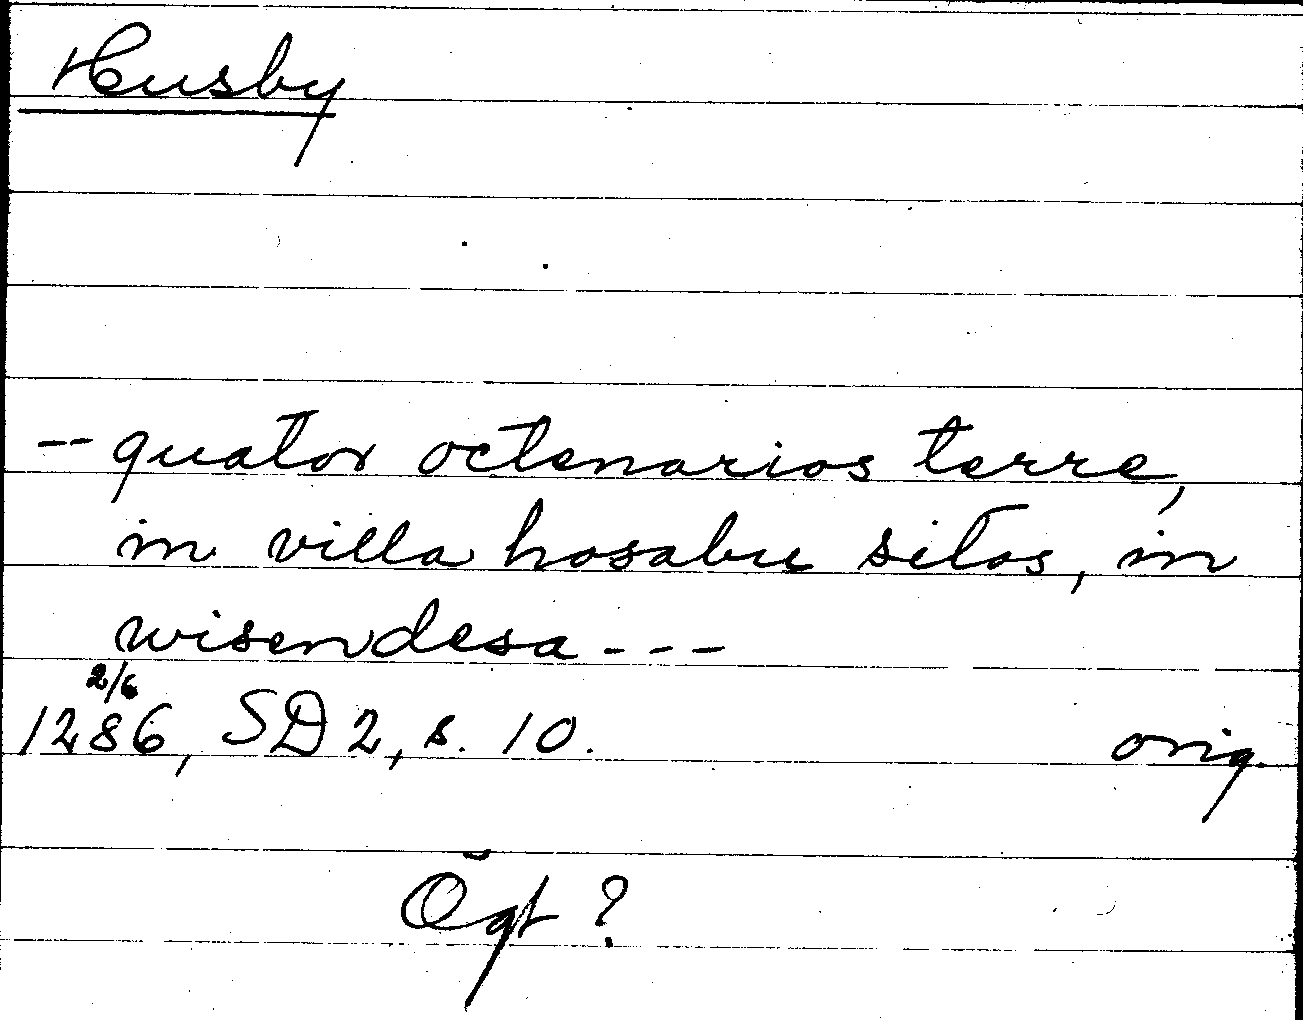 Husby
-- quator octenarios terre,
in villa hosabu sitos, in
wisendesa - - -
2/6
1286, SD 2, s. 10. orig.
Ögt ?